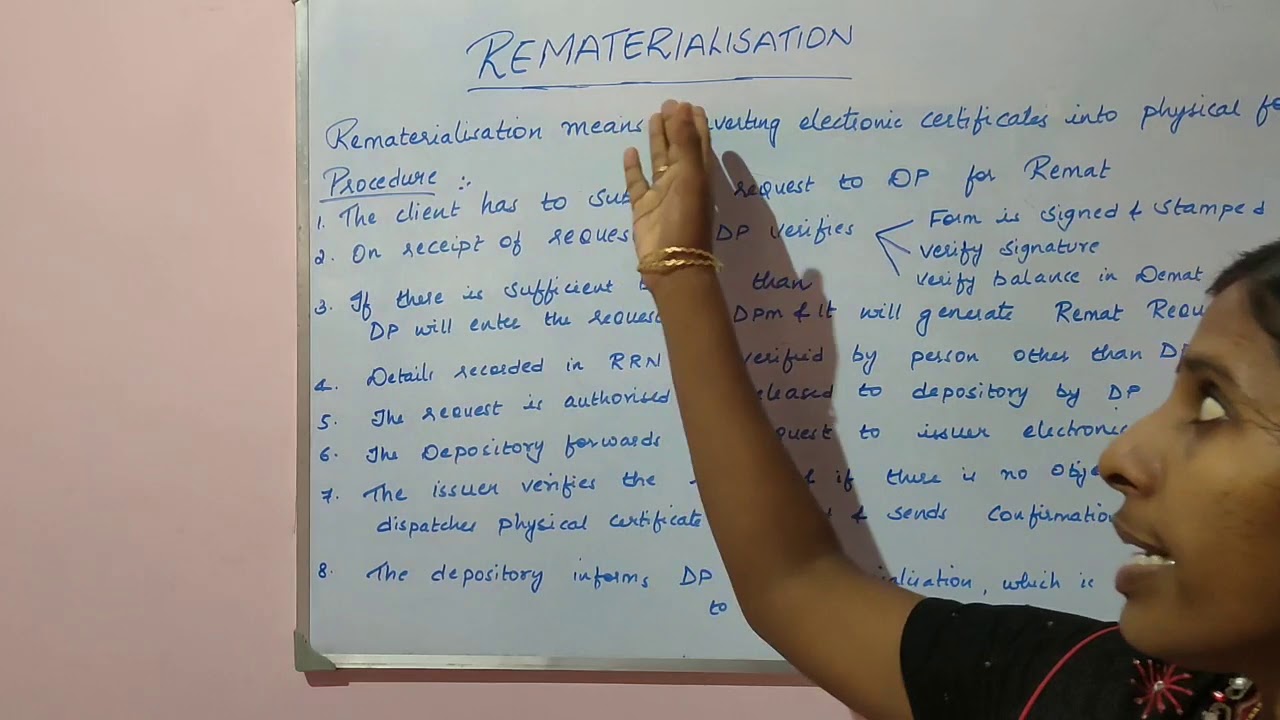 REMATERIALISATION
Rematerialisation means electronic certificates into physical
Procedure :-
1. The client has to request to DP for Remat
2. On receipt of DP verifies
Form is signed & stamped
verify signature
verify balance in Demat
3. If there is sufficient than
DP will enter the DPM & It will generate Remat
4. Details recorded in RRN verified by person other than
5. The request is authorised to depository by DP
6. The Depository forwards to issuer
7. The issuer verifies the if there is no
dispatches physical certificate & sends confirmation
8. The depository informs DP which is
to